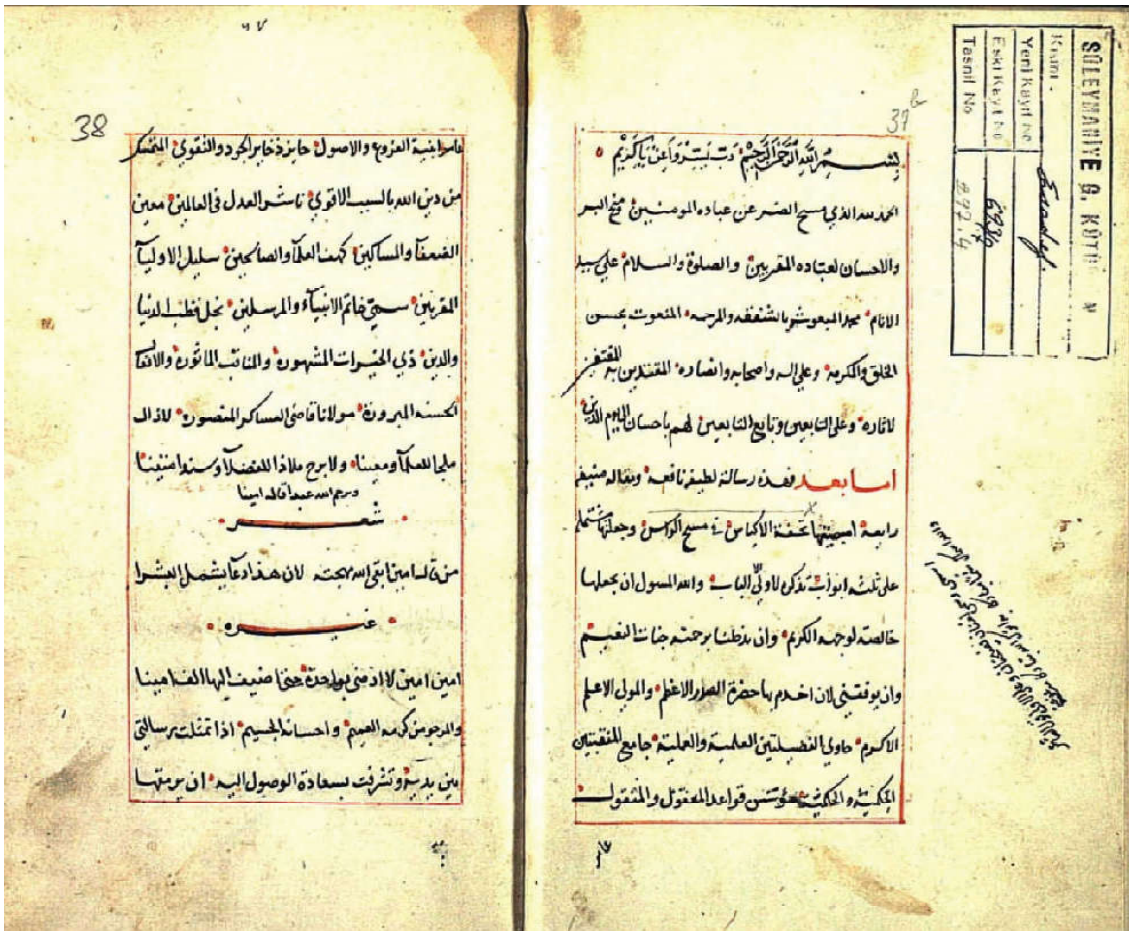 37 b
بسم الله الرحمن الرحيم رب يسر واعن يا كريم
الحمد لله الذي مسح الضر عن عباده المومنين منح البر
والاحسان لعباده المقربين والصلوة والسلام علي سيد
الانام محمد المبعوث بالشفقه والمرحمه المنعوت بحسن
الخلق والمكرمه وعلي اله واصحابه وانصاره المقتدين به المقتفين
لاثاره وعلي التابعين وتابع التابعين لهم باحسان الي يوم الدين
اما بعد فهذه رسالة لطيفه نافعه ومقاله منيفه
رابعة اسميتها تحفة الاكياس في مسح الراس وجعلتها مشتمله
علي ثلثه ابواب تذكره لاولي الالباب والله المسول ان يجعلها
خالصة لوجهه الكريم وان يدخلنا برحمته جنات النعيم
وان يوفقني لان اخدم بها حضرة الصدر الاعظم والمولي الاعلم
الاكرم حاوي الفضيلتين العلمية والعملية جامع المنقبتين
الملكية والحكمية قواعد المعقول والمنقول
عامر
SÜLEYMANİYE G. KÜTÜP
Kısmı
Esadef.
Yeni Kayıt No
Eski Kayıt No
Tasnif No
297.4
38
عامر ابنية الفروع والاصول حايز ذخاير الجود والتقوي المتمسك
من دين الله بالسبب الاقوي ناشر العدل في العالمين معين
الضعفآ والمساكين كهف العلمآ والصالحين سليل الاوليآ
المقربين سمي خاتم الانبيآء والمرسلين نجل قطب الدنيا
والدين ذي الخيرات المشهوره والمناقب الماثوره والافعال
الحسنه المبروره مولانا قاضي العساكر المنصوره لازال
ملجا للعلمآ ومعينا ولا برح ملاذا للفضلآ وسندا
ويرحم الله عبدا قال امينا
شعر
من قال امين ابقي الله مهجته لان هذا دعآ يشمل البشرا
غيره
امين امين لا ارضي بواحدة حتي اضيف اليها الف امينا
والمرجو من كرمه العميم واحسانه الجسيم اذا تمثلت رسالتي
بين يديه وتشرفت بسعادة الوصول اليه ان يرمقها